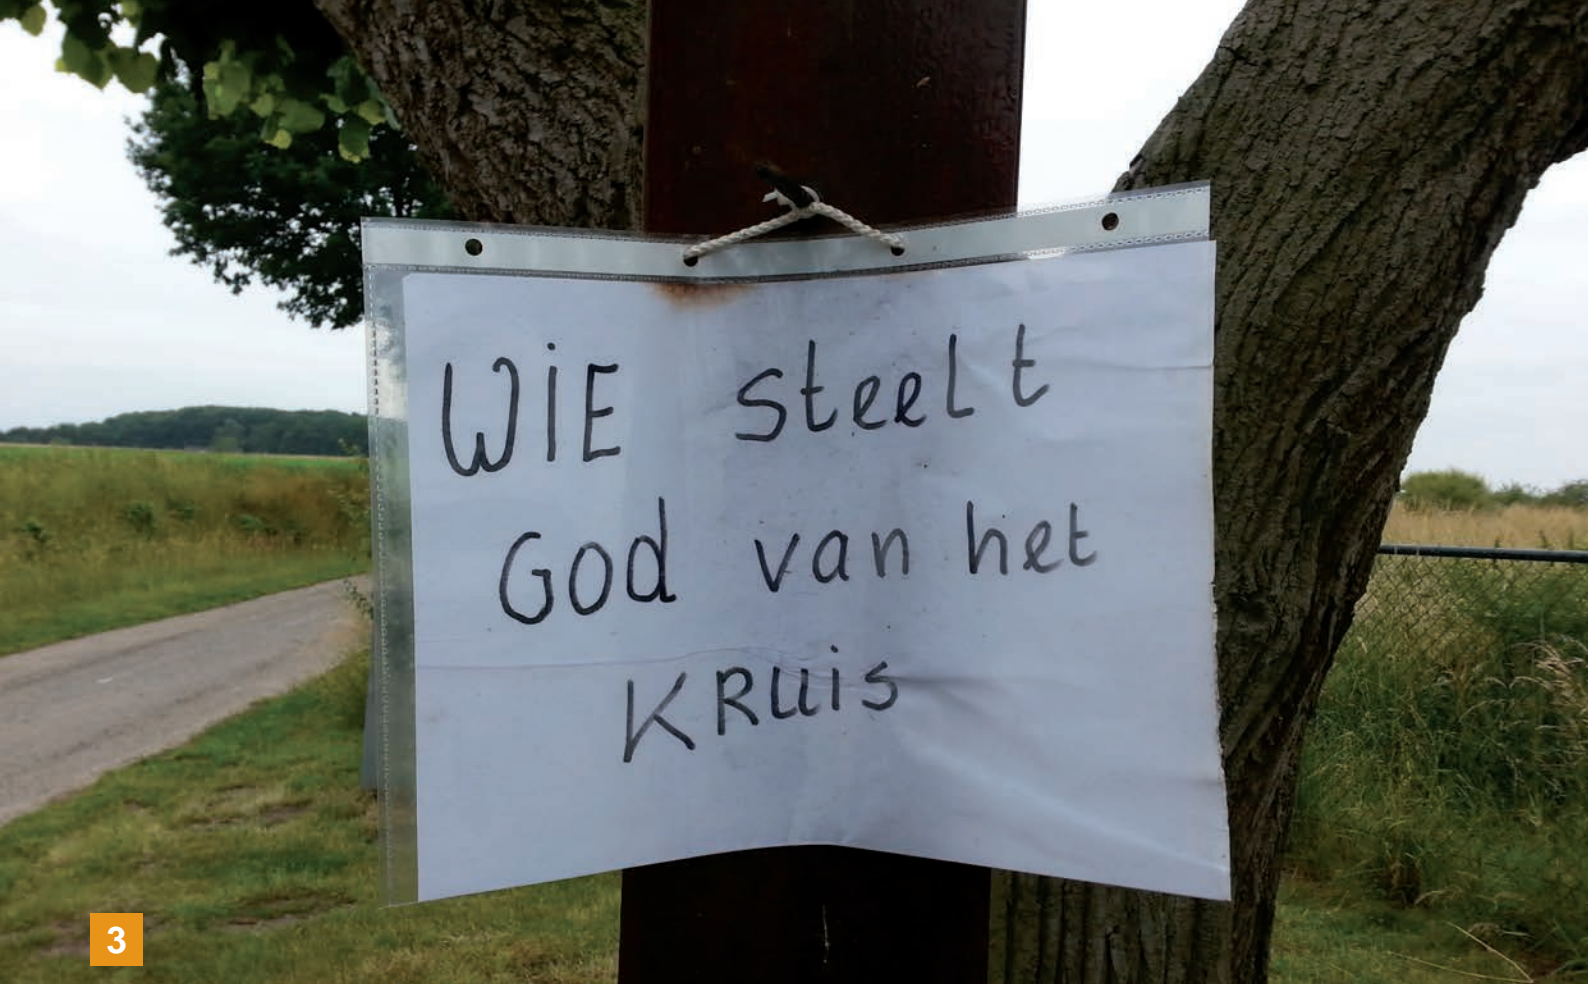 WiE steelt
God van het
KRuis
3